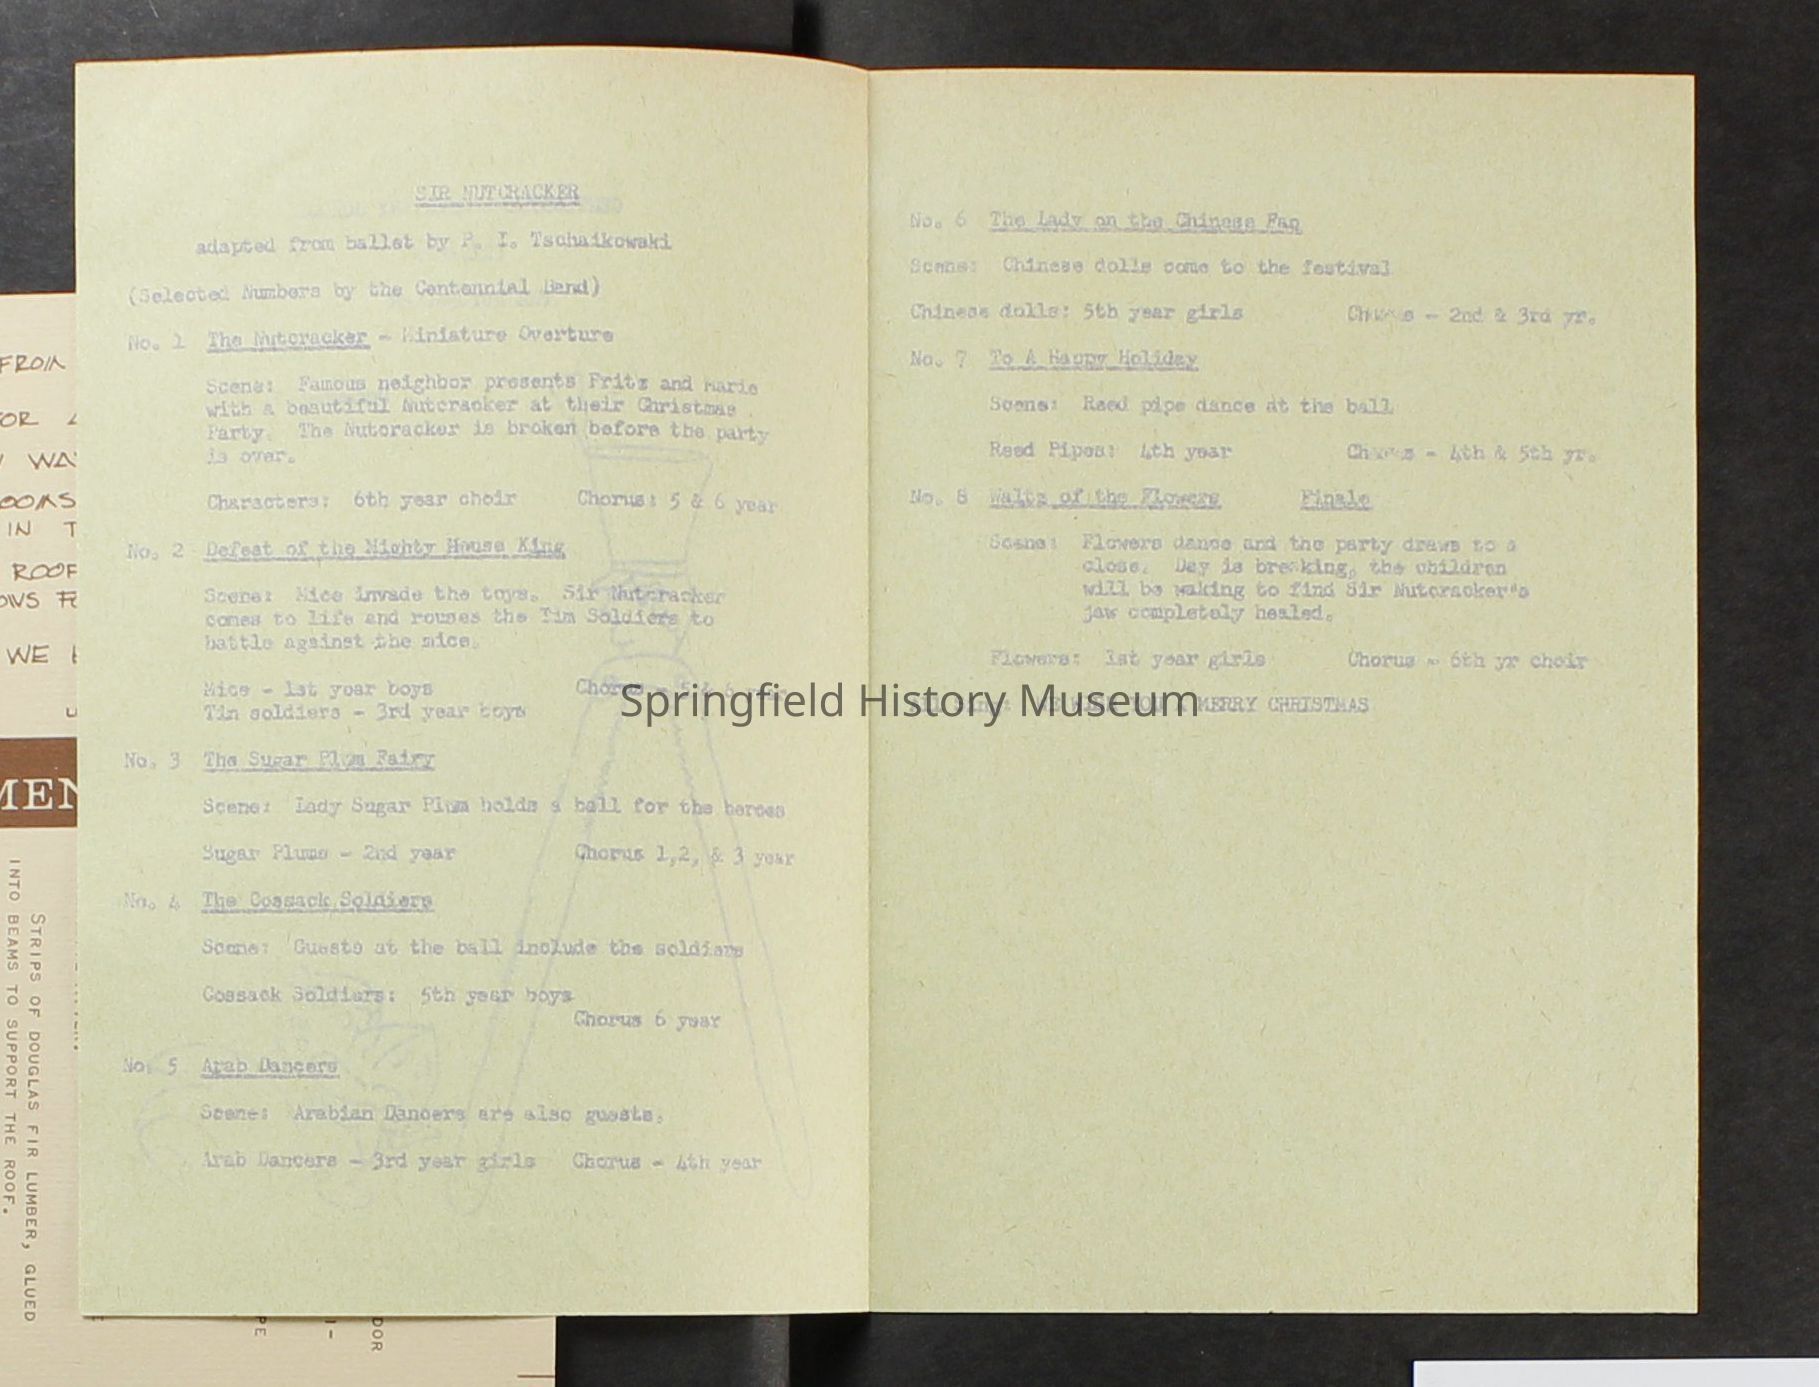 SIR NUTCRACKER
adapted from ballet by P. I. Tschaikowski
(Selected Numbers by the Centennial Band)
No. 1 The Nutcracker - Miniature Overture
Scene: Famous neighbor presents Fritz and Marie
with a beautiful Nutcracker at their Christmas
Party. The Nutcracker is broken before the party
is over.
Characters: 6th year choir Chorus: 5 & 6 year
No. 2 Defeat of the Mighty Mouse King
Scene: Mice invade the toys. Sir Nutcracker
comes to life and rouses the Tin Soldiers to
battle against the mice.
Mice - 1st year boys Chorus - 5 & 6 year
Tin soldiers - 3rd year boys
No. 3 The Sugar Plum Fairy
Scene: Lady Sugar Plum holds a ball for the heroes
Sugar Plums - 2nd year Chorus 1,2, & 3 year
No. 4 The Cossack Soldiers
Scene: Guests at the ball include the soldiers
Cossack Soldiers: 5th year boys
Chorus 6 year
No. 5 Arab Dancers
Scene: Arabian Dancers are also guests.
Arab Dancers - 3rd year girls Chorus - 4th year
No. 6 The Lady on the Chinese Fan
Scene: Chinese dolls come to the festival
Chinese dolls: 5th year girls Chorus - 2nd & 3rd yr.
No. 7 To A Happy Holiday
Scene: Reed pipe dance at the ball
Reed Pipes: 4th year Chorus - 4th & 5th yr.
No. 8 Waltz of the Flowers Finale
Scene: Flowers dance and the party draws to a
close. Day is breaking, the children
will be waking to find Sir Nutcracker's
jaw completely healed.
Flowers: 1st year girls Chorus - 6th yr choir
WE WISH YOU A MERRY CHRISTMAS
Springfield History Museum
FROM
OR
WA
OOMS
IN T
ROOF
OWS F
WE
MEN
STRIPS OF DOUGLAS FIR LUMBER, GLUED
INTO BEAMS TO SUPPORT THE ROOF.
PE
I-
DOR